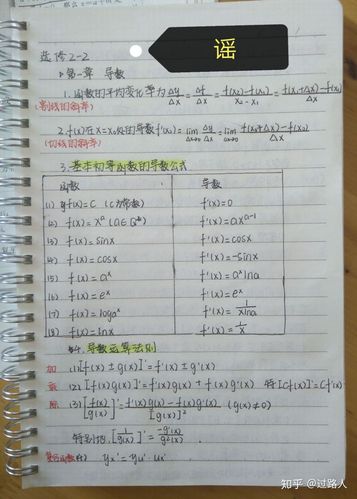 选修2-2
谣
第一章 导数
1.函数的平均变化率为 Δy/Δx = Δf/Δx = f(x₂)-f(x₁)/x₂-x₁ = f(x₁+Δx)-f(x₁)/Δx
(割线的斜率)
2.f(x)在x=x₀处的导数f'(x₀)=lim Δx→0 Δy/Δx = lim Δx→0 f(x₀+Δx)-f(x₀)/Δx
(切线的斜率)
3.基本初等函数的导数公式
函数 导数
(1) f(x)=C (C为常数) f'(x)=0
(2) f(x)=xᵃ (a∈Q*) f'(x)=axᵃ⁻¹
(3) f(x)=sinx f'(x)=cosx
(4) f(x)=cosx f'(x)=-sinx
(5) f(x)=aˣ f'(x)=aˣlna
(6) f(x)=eˣ f'(x)=eˣ
(7) f(x)=logₐx f'(x)=1/xlna
(8) f(x)=lnx f'(x)=1/x
4.导数运算法则
加 (1)[f(x)±g(x)]'=f'(x)±g'(x)
乘 (2)[f(x)g(x)]'=f'(x)g(x)±f(x)g'(x) 特[Cf(x)]'=Cf'(x)
除 (3)[f(x)/g(x)]'=f'(x)g(x)-f(x)g'(x)/[g(x)]² (g(x)≠0)
特别地,[1/g(x)]'=-g'(x)/g²(x).
复合函数(4) yₓ'=yᵤ'·uₓ'
知乎 @过路人